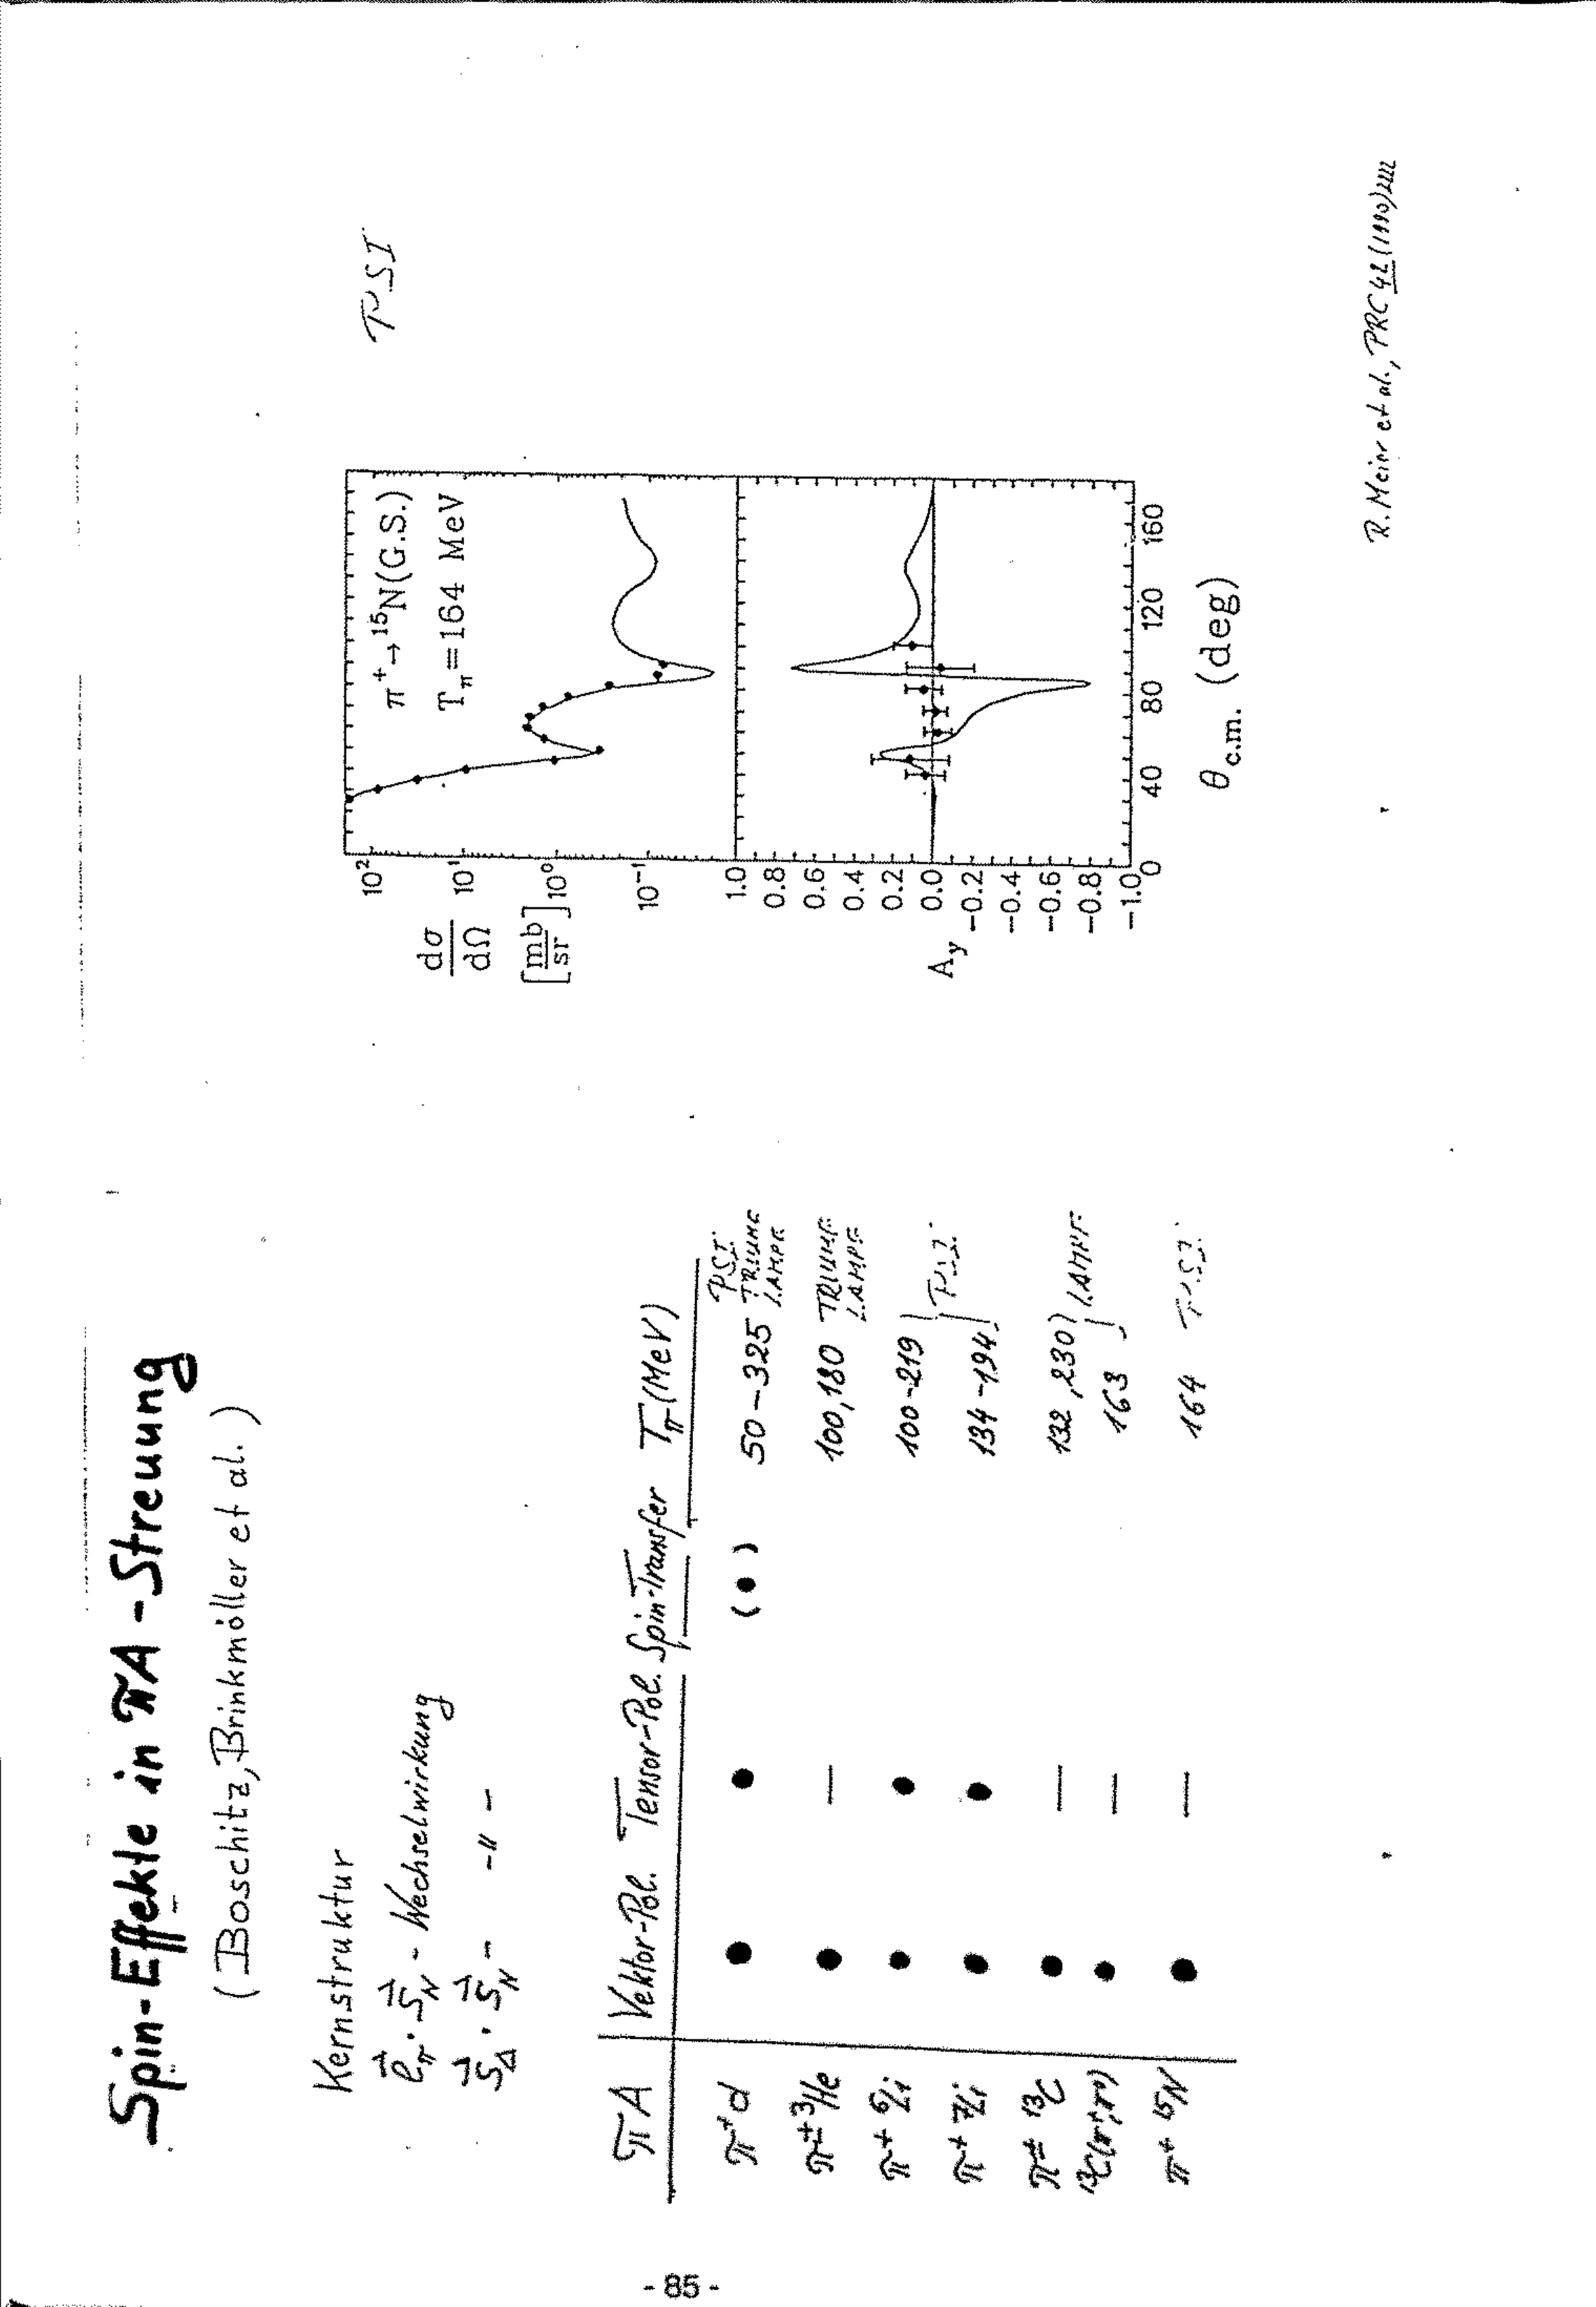 Spin-Effekte in πA-Streuung
(Boschitz, Brinkmöller et al.)
Kernstruktur
l⃗π · S⃗N - Wechselwirkung
S⃗Δ · S⃗N - -"-
πA Vektor-Pol. Tensor-Pol. Spin-Transfer Tπ(MeV)
π⁺d ● ● (●) 50-325 PSI TRIUMF LAMPF
π± ³He ● — 100,180 TRIUMF LAMPF
π⁺ ⁶Li ● ● 100-219 } PSI
π⁺ ⁷Li ● ● 134-194
π± ¹³C ● — 132,230 } LAMPF
¹³C(π⁺,π⁰) ● — 163
π⁺ ¹⁵N ● — 164 PSI
PSI
π⁺→¹⁵N(G.S.)
Tπ=164 MeV
dσ/dΩ
[mb/sr]
10²
10¹
10⁰
10⁻¹
1.0
0.8
0.6
0.4
0.2
0.0
-0.2
-0.4
-0.6
-0.8
-1.0
Ay
0 40 80 120 160
θc.m. (deg)
R. Meier et al., PRC 42 (1990)
- 85 -